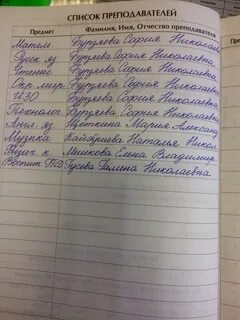 СПИСОК ПРЕПОДАВАТЕЛЕЙ
Предмет Фамилия, Имя, Отчество преподавателя
Матем Бурзяева София Николаевна
Русск яз Бурзяева София Николаевна
Чтение Бурзяева София Николаевна
Окр мир Бурзяева София Николаевна
ИЗО Бурзяева София Николаевна
Технолог Бурзяева София Николаевна
Англ яз Мария Алексан
Музыка Наталья Никол
Физич к Мешкова Елена Владимир
Воспит Гусева Галина Николаевна